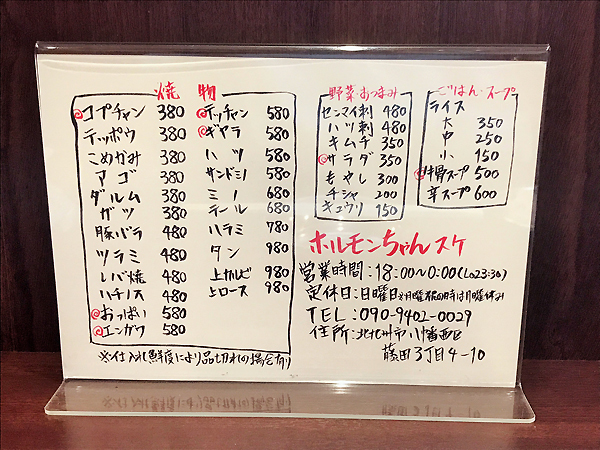 焼物
◎コプチャン 380
テッポウ 380
こめかみ 380
アゴ 380
ダルム 380
ガツ 380
豚バラ 480
ツラミ 480
レバ焼 480
ハチノス 480
◎おっぱい 580
◎エンガワ 580
◎テッチャン 580
◎ギヤラ 580
ハツ 580
サンドミノ 580
ミノ 680
テール 680
ハラミ 780
タン 980
上カルビ 980
上ロース 980
※仕入れ鮮度により品切れの場合有り
野菜・おつまみ
センマイ刺 480
ハツ刺 480
キムチ 350
◎サラダ 350
もやし 300
チシャ 200
キュウリ 150
ごはん・スープ
ライス
大 350
中 250
小 150
◎牛骨スープ 500
辛スープ 600
ホルモンちゃんスケ
営業時間:18:00~0:00(Lo23:30)
定休日:日曜日※月曜祝の時は月曜休み
TEL:090-9402-0029
住所:北九州市八幡西区
藤田3丁目4-10